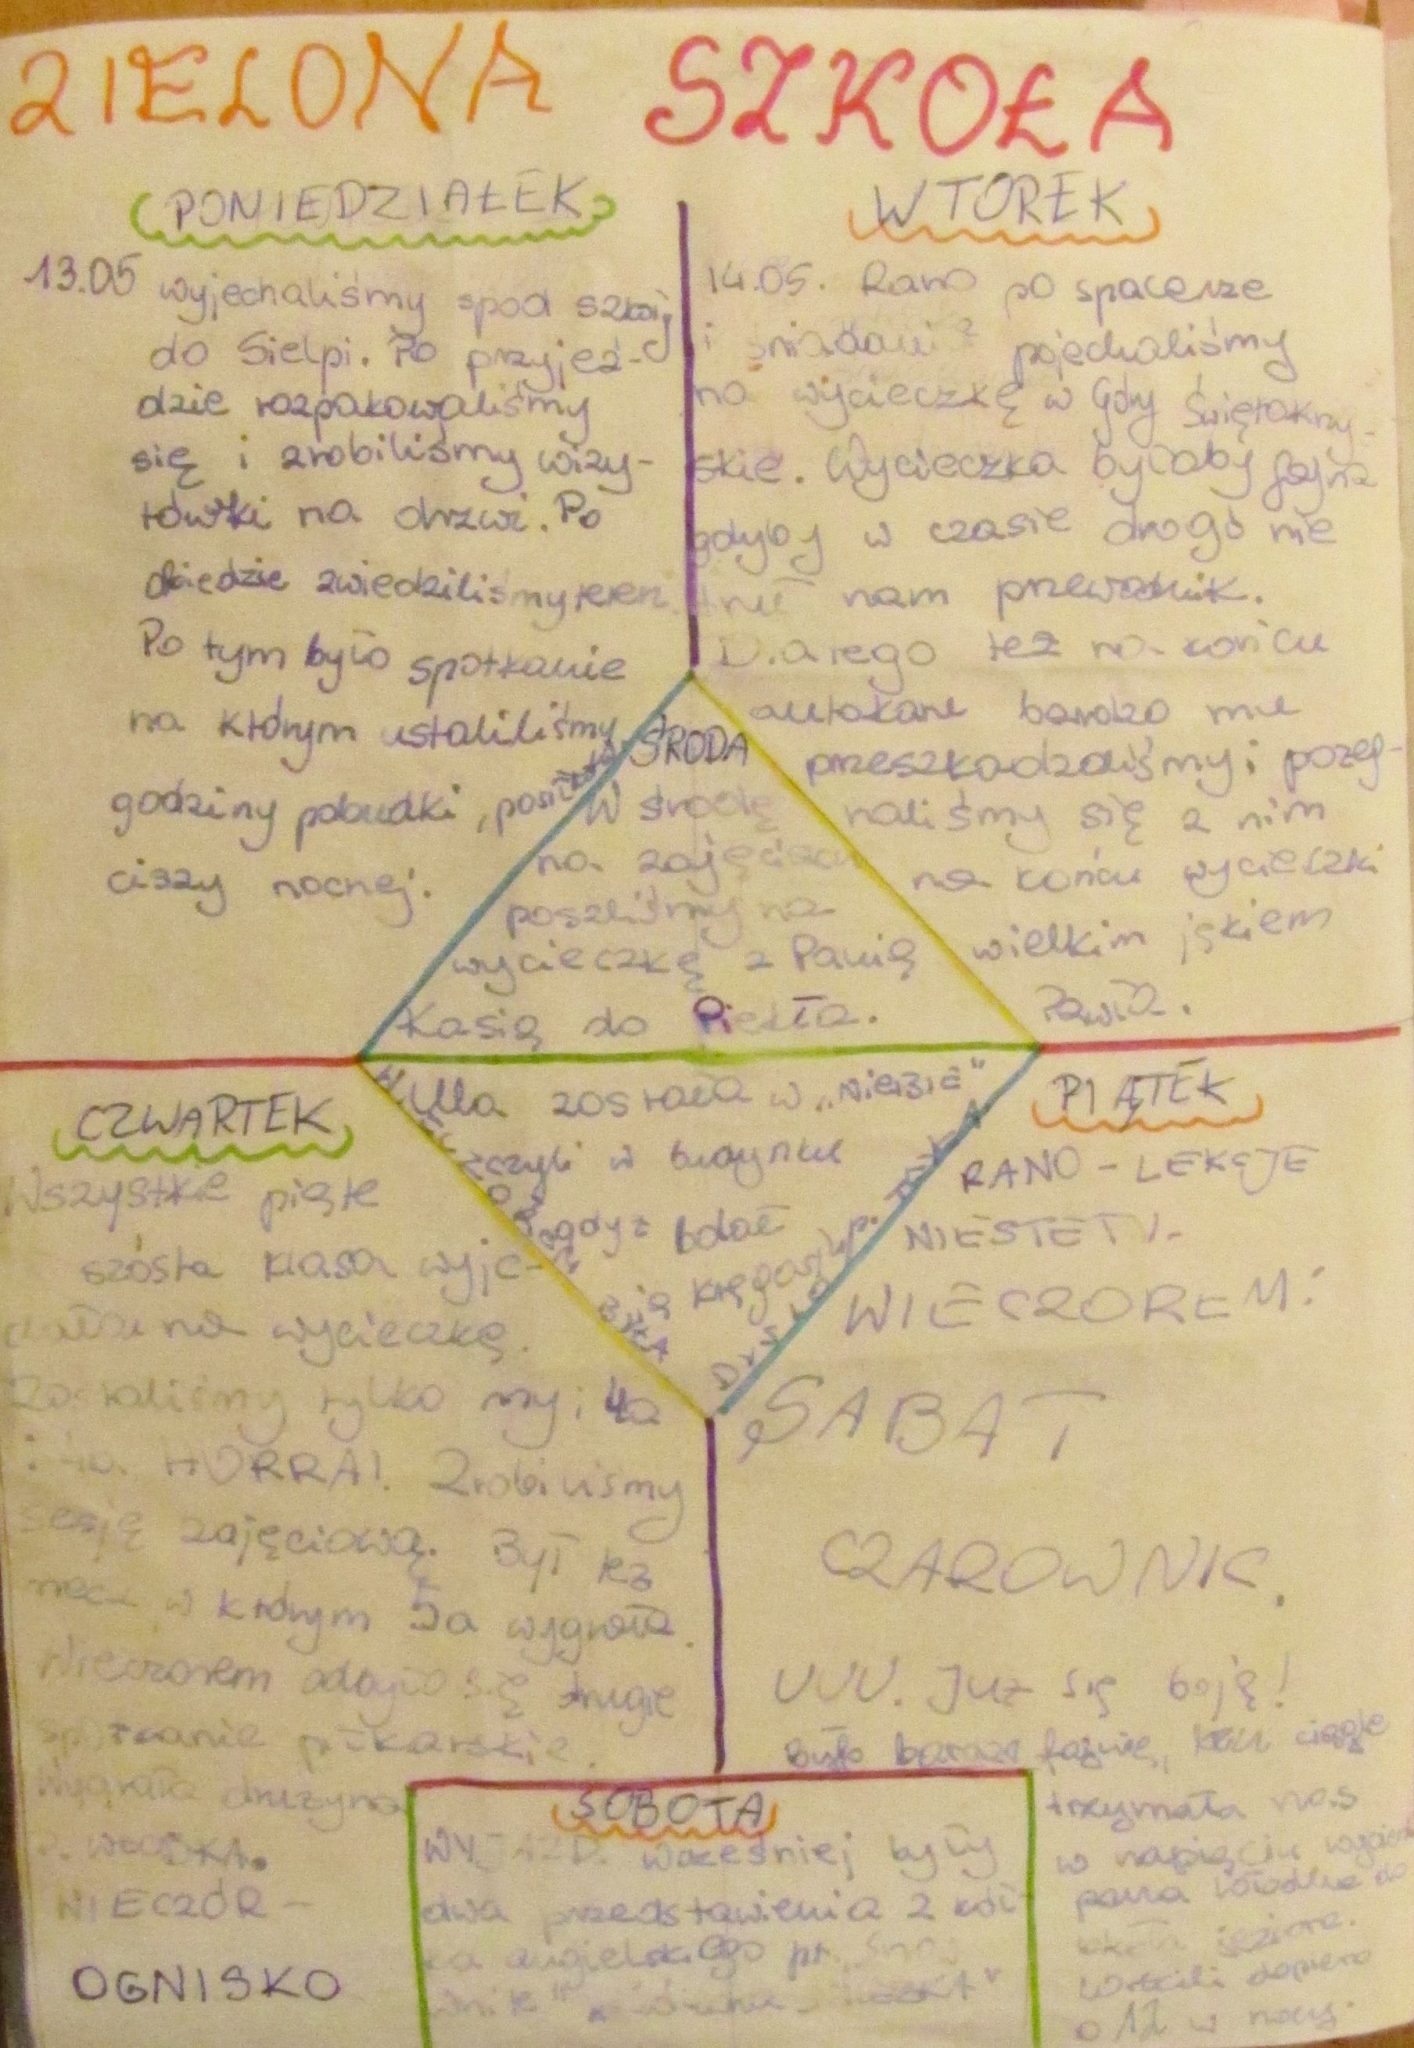 ZIELONA SZKOŁA
PONIEDZIAŁEK
13.05 wyjechaliśmy spod szkoły
do Sielpi. Po przyjeź-
dzie rozpakowaliśmy
się i zrobiliśmy wizy-
tówki na drzwi. Po
obiedzie zwiedziliśmy teren.
Po tym było spotkanie
na którym ustaliliśmy
godziny pobudki, posiłków
ciszy nocnej.
WTOREK
14.05. Rano po spacerze
i pojechaliśmy
na wycieczkę w Góry Świętokrzy-
skie. Wycieczka byłaby fajna
gdyby w czasie drogi nie
truł nam przewodnik.
Dlatego też na końcu
autokaru bardzo mu
przeszkadzaliśmy i pożeg-
naliśmy się z nim
na końcu wycieczki
wielkim jękiem
ŚRODA
W środę
na zajęciach
poszliśmy na
wycieczkę z Panią
Kasią do Piekła.
Ula została w „NIEBIE"
czyli w budynku
gdyż bolał
ją kręgosłup.
WIECZOREM BYŁA
DYSKOTEKA
CZWARTEK
Wszystkie piąte
szósta klasa wyje-
chała na wycieczkę.
Zostaliśmy tylko my i 4a
HURRA! Zrobiliśmy
sesję zajęciową. Był też
mecz w którym 5a wygrała.
Wieczorem odbyło się drugie
spotkanie piłkarskie.
Wygrała drużyna
WIECZÓR -
OGNISKO
PIĄTEK
RANO - LEKCJE
NIESTETY.
WIECZOREM:
SABAT
CZAROWNIC.
UUU. Już się boję!
Było bardzo fajnie, ciągle
trzymała nas
w napięciu
pana do
jeziora.
Wrócili dopiero
o 12 w nocy.
SOBOTA
WYJAZD. Wcześniej były
dwa przedstawienia z kół-
ka angielskiego pt.